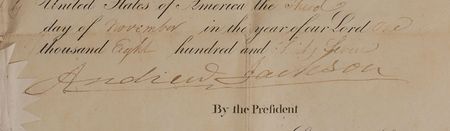 United States of America the Third
day of November in the year of our Lord One
thousand Eight hundred and
Andrew Jackson
By the Preſident